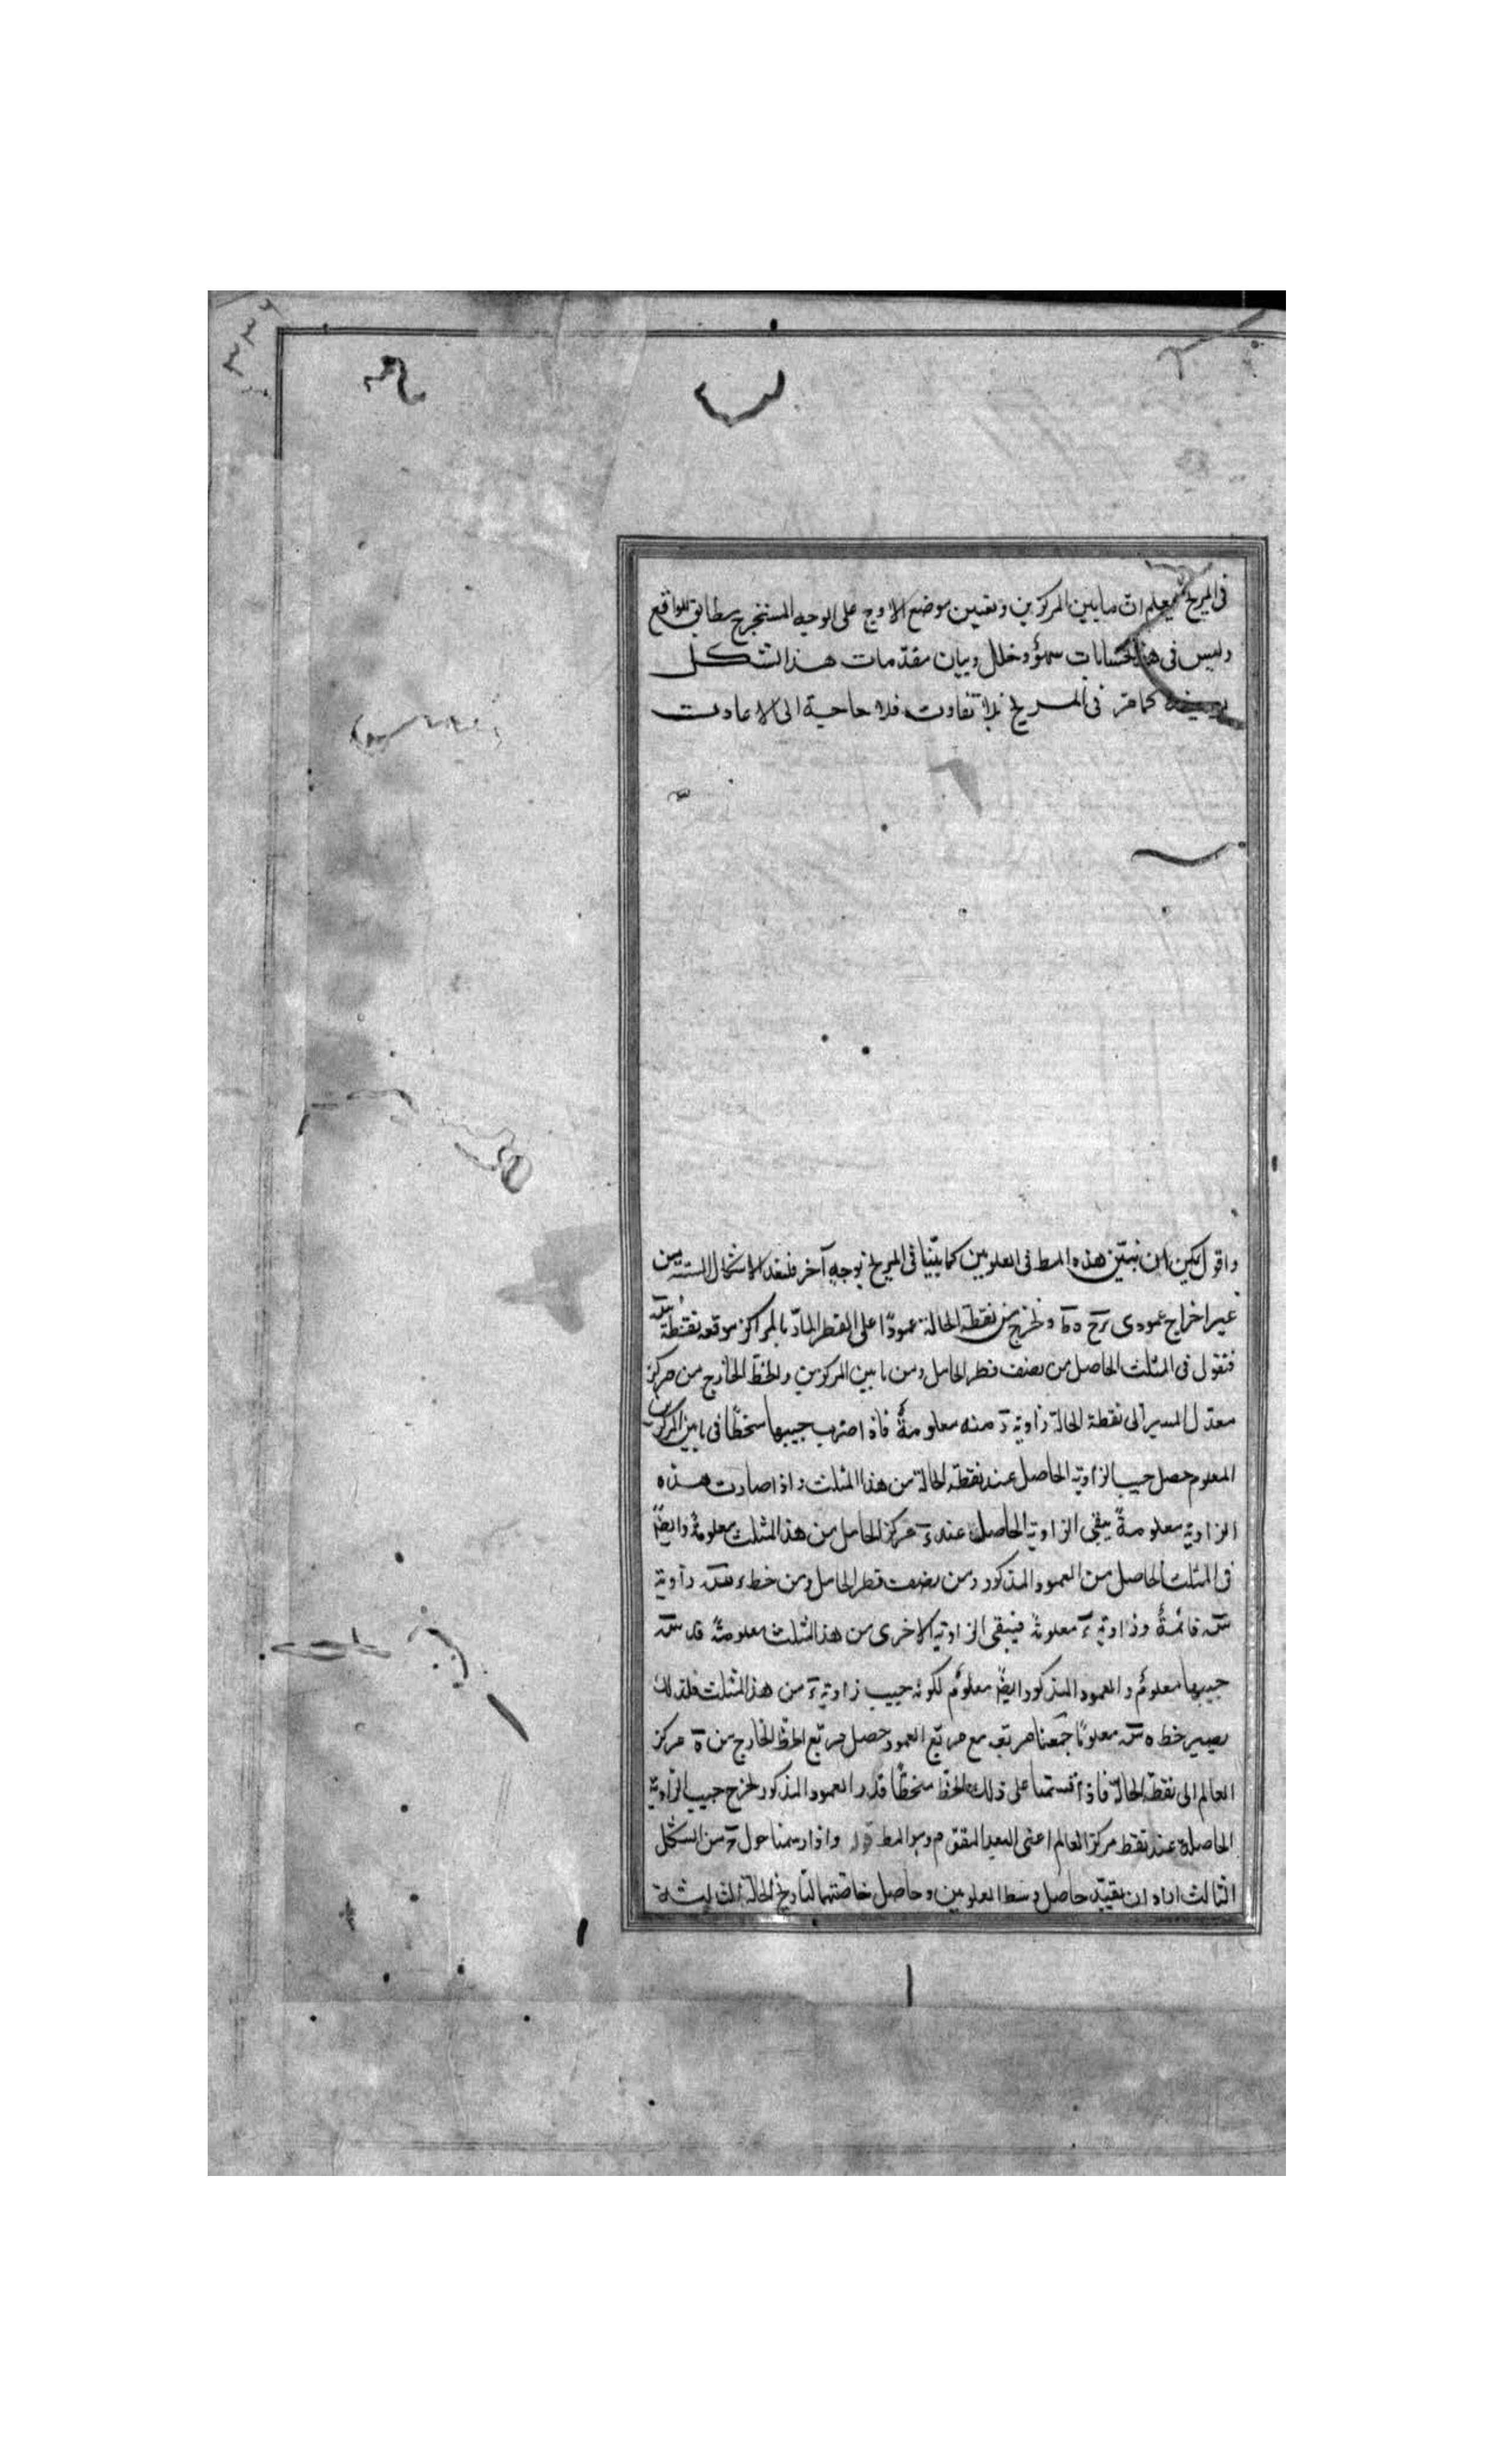 فى المريخ ان مابين المركزين وتعيين موضع الاوج على الوجه المستخرج مطابق للواقع
وليس فى هذه الحسابات سهو وخلل وبيان مقدمات هذا الشكل
كما مر فى المريخ بلا تفاوت فلا حاجة الى الاعادت
واقول يمكن ان نبين هذه المط فى العلويين كما بينا فى المريخ بوجه آخر فنعد الاشكال
غير اخراج عمودى ونخرج من نقطة الحالة عمودا على القطر المار بالمراكز موقعه نقطة س
فنقول فى المثلث الحاصل من نصف قطر الحامل ومن ما بين المركزين والخط الخارج من مركز
معدل المسير الى نقطة الحالة زاوية د منه معلومة فاذا ضرب جيبها منحطا فى ما بين المركزين
المعلوم حصل جيب الزاوية الحاصل عند نقطة الحالة من هذا المثلث واذا صارت هذه
الزاوية معلومة يبقى الزاوية الحاصل عند ء مركز الحامل من هذا المثلث معلومة وايضا
فى المثلث الحاصل من العمود المذكور ومن نصف قطر الحامل ومن خط ء س زاوية
س قائمة وزاوية ء معلومة فيبقى الزاوية الاخرى من هذا المثلث معلومة
جيبها معلوم والعمود المذكور ايضا معلوم لكونه جيب زاوية ء من هذا المثلث فلذلك
يصير خط ه س معلوما جمعنا مربعه مع مربع العمود حصل مربع الخط الخارج من ه مركز
العالم الى نقطة الحالة فاذا قسمنا على ذلك الخط منحطا قدر العمود المذكور لخرج جيب الزاوية
الحاصلة عند نقطة مركز العالم اعنى البعد المقوم وهو المط واذا رسمنا حول من الشكل
الثالث اراد ان نقيد حاصل وسط العلويين وحاصل خاصتهما لتاريخ الحالة الثالثة